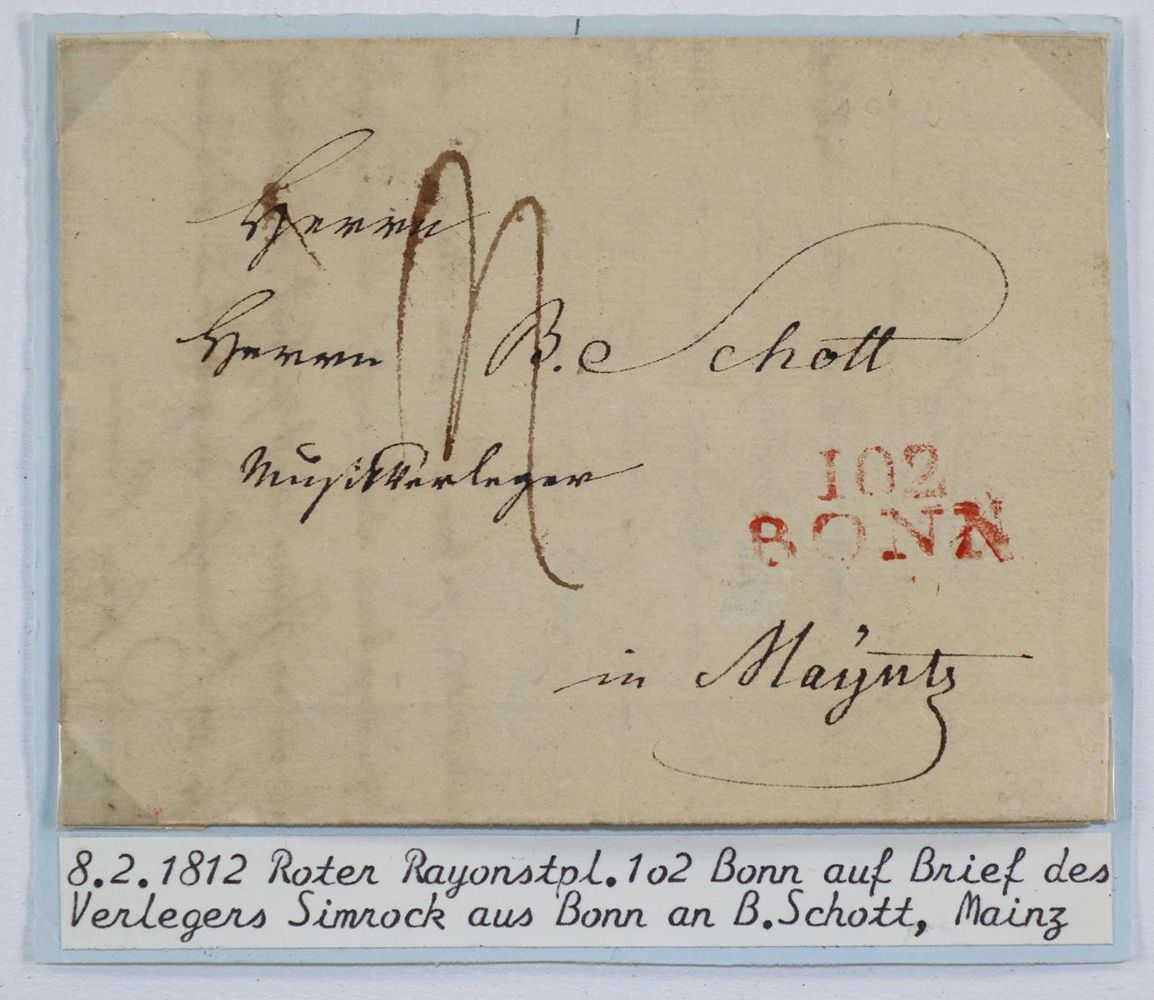 Herrn
Herrn B. Schott
Musikverleger
102
BONN
in Mayntz
8.2.1812 Roter Rayonstpl.1o2 Bonn auf Brief des
Verlegers Simrock aus Bonn an B.Schott, Mainz